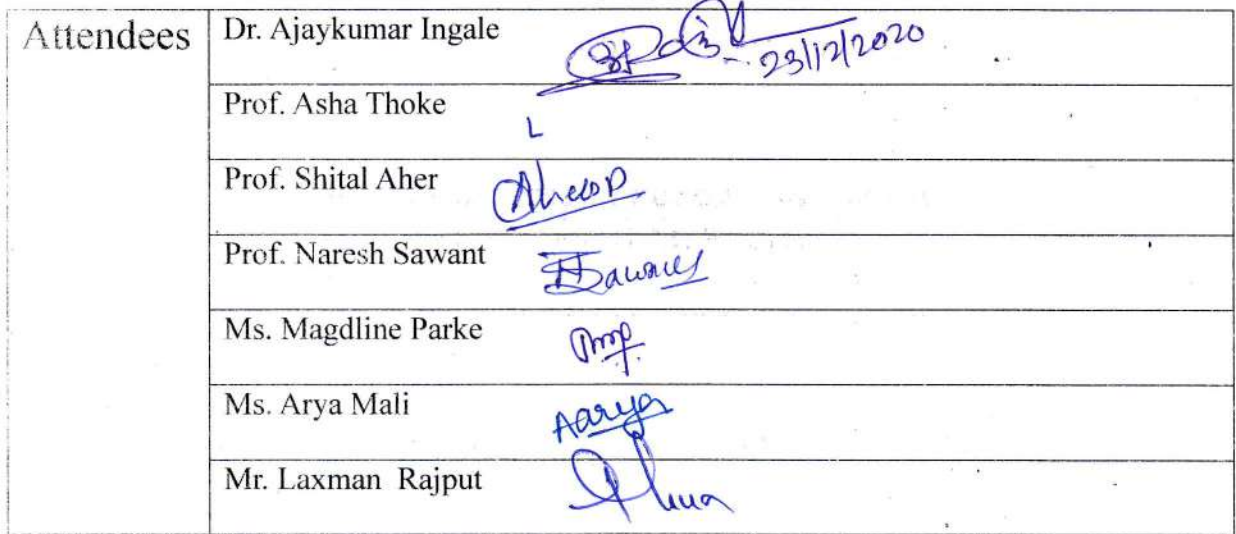 Attendees
Dr. Ajaykumar Ingale
23/12/2020
Prof. Asha Thoke
L
Prof. Shital Aher
Prof. Naresh Sawant
Ms. Magdline Parke
Ms. Arya Mali
Aarya
Mr. Laxman Rajput